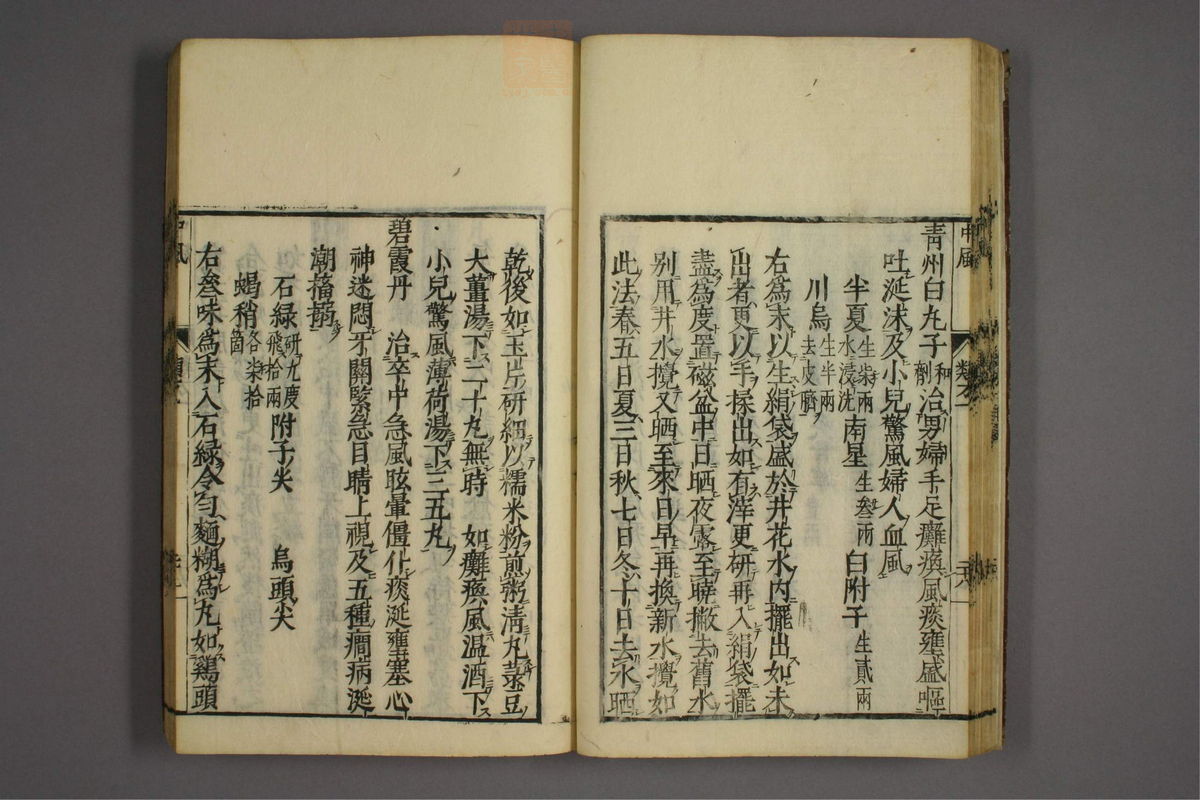 中風
青州白丸子和劑治男婦手足癱瘓風痰壅盛嘔
吐涎沫及小兒驚風婦人血風
半夏生柒兩水浸洗南星生叁兩白附子生貳兩
川烏生半兩去皮臍
右爲末以生絹袋盛於井花水內擺出如未
出者更以手揉出如有滓更研再入絹袋擺
盡爲度置磁盆中日晒夜露至曉撇去舊水
别用井水攪又晒至來日早再換新水攪如
此法春五日夏三日秋七日冬十日去水晒
乾後如玉片研細以糯米粉煎粥清丸菉豆
大薑湯下二十丸無時 如癱瘓風温酒下
小兒驚風薄荷湯下三五丸
碧霞丹 治卒中急風眩暈僵仆痰涎壅塞心
神迷悶牙關緊急目睛上視及五種癇病涎
潮搐搦
石緑研九度飛拾兩附子尖 烏頭尖
蝎稍各柒拾箇
右叁味爲末入石緑令勻麵糊爲丸如鷄頭